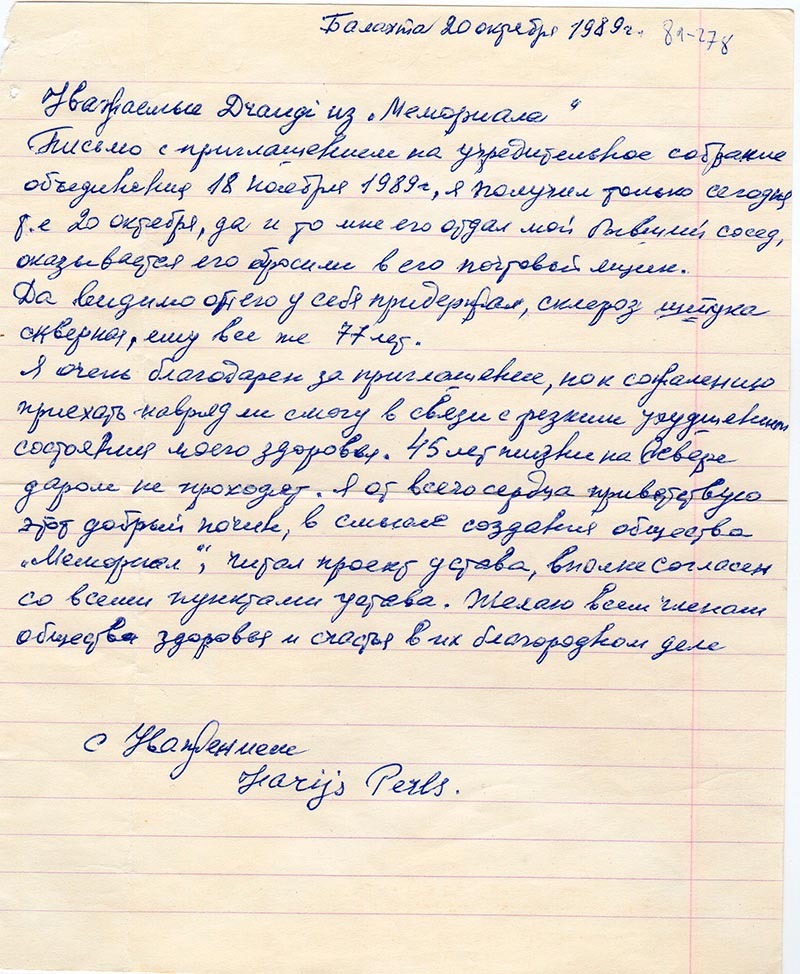 Балахта 20 октября 1989 г. 81-278
Уважаемые из „Мемориала“
Письмо с приглашением на учредительное собрание
объединения 18 ноября 1989 г, я получил только сегодня
т.е 20 октября, да и то мне его отдал мой бывший сосед,
оказывается его бросили в его почтовый ящик.
Да видимо он его у себя придержал, склероз штука
скверная, ему все же 77 лет.
Я очень благодарен за приглашение, но к сожалению
приехать навряд ли смогу в связи с резким ухудшением
состояния моего здоровья. 45 лет жизни на Севере
даром не проходят. Я от всего сердца приветствую
этот добрый почин, в смысле создания общества
„Мемориал“, читал проект устава, вполне согласен
со всеми пунктами устава. Желаю всем членам
общества здоровья и счастья в их благородном деле
с Уважением
Harijs Perls.